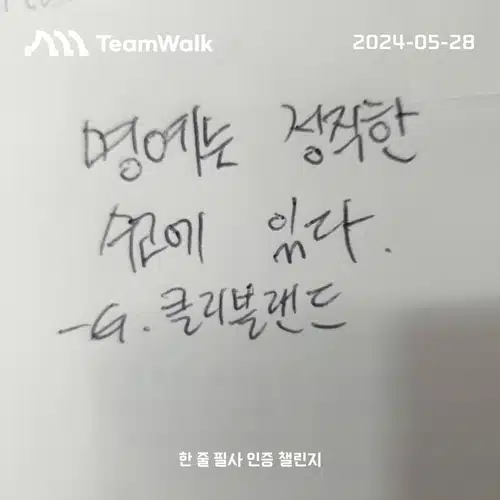 TeamWalk
2024-05-28
명예는 정직한
수고에 있다.
-G. 클리블랜드
한 줄 필사 인증 챌린지